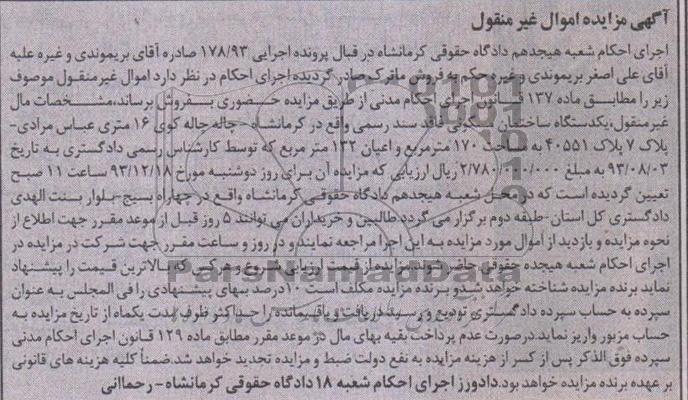 آگهی مزایده اموال غیر منقول
اجرای احکام شعبه هیجدهم دادگاه حقوقی کرمانشاه در قبال پرونده اجرایی ۱۷۸/۹۳ صادره آقای بریموندی و غیره علیه
آقای علی اصغر بریموندی و غیره حکم به فروش ماترک صادر گردیده اجرای احکام در نظر دارد اموال غیرمنقول موصوف
زیر را مطابق ماده ۱۳۷ قانون اجرای احکام مدنی از طریق مزایده حضوری بفروش برساند، مشخصات مال
غیرمنقول، یکدستگاه ساختمان مسکونی فاقد سند رسمی واقع در کرمانشاه - چاله چاله کوی ۱۶ متری عباس مرادی-
پلاک ۷ پلاک ۴۰۵۵۱ به مساحت ۱۷۰ مترمربع و اعیان ۱۳۲ متر مربع که توسط کارشناس رسمی دادگستری به تاریخ
۹۳/۰۸/۰۳ به مبلغ ۲/۷۸۰/۰۰۰/۰۰۰ ریال ارزیابی که مزایده آن برای روز دوشنبه مورخ ۹۳/۱۲/۱۸ ساعت ۱۱ صبح
تعیین گردیده است که در محل شعبه هیجدهم دادگاه حقوقی کرمانشاه واقع در چهارراه بسیج-بلوار بنت الهدی
دادگستری کل استان -طبقه دوم برگزار می گردد طالبین و خریداران می توانند ۵ روز قبل از موعد مقرر جهت اطلاع از
نحوه مزایده و بازدید از اموال مورد مزایده به این اجرا مراجعه نمایند و در روز و ساعت مقرر جهت شرکت در مزایده در
اجرای احکام شعبه هیجده حقوقی حاضر شوند مزایده از قیمت ارزیابی شروع و هر کس که بالاترین قیمت را پیشنهاد
نماید برنده مزایده شناخته خواهد شد و برنده مزایده مکلف است ۱۰ درصد بهای پیشنهادی را فی المجلس به عنوان
سپرده به حساب سپرده دادگستری تودیع و رسید دریافت و باقیمانده را حداکثر ظرف مدت یکماه از تاریخ مزایده به
حساب مزبور واریز نماید. درصورت عدم پرداخت بقیه بهای مال در موعد مقرر مطابق ماده ۱۲۹ قانون اجرای احکام مدنی
سپرده فوق الذکر پس از کسر از هزینه مزایده به نفع دولت ضبط و مزایده تجدید خواهد شد. ضمناً کلیه هزینه های قانونی
بر عهده برنده مزایده خواهد بود. دادورز اجرای احکام شعبه ۱۸ دادگاه حقوقی کرمانشاه - رحمانی
ParsNamadData